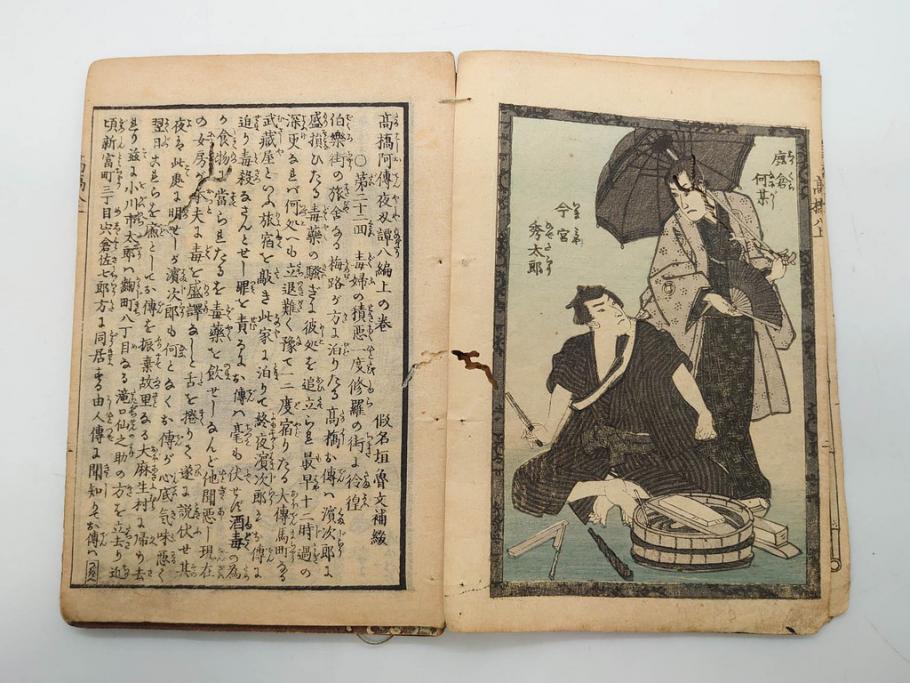 倉何某
今宮秀太郎
高橋阿傳夜刄譚八編上の巻 假名垣魯文補綴
○第二十四 毒婦の積悪一度修羅の街に彷徨
伯樂街の旅舎なる梅路が方に泊りたる髙橋お傳ハ濱次郎に
盛損ひたる毒薬の騒ぎに彼処を追立られ最早十二時過の
深更なれバ何処へも立退難く豫て二度宿りたる大傳馬町なる
武藏屋といふ旅宿を敲き此家に泊りて終夜濱次郎ハお傳に
迫り毒殺なさんとせし罪を責るにお傳ハ毫も伏せず酒毒の為
か食物に當られたるを毒薬と飲せしなんど他聞悪し現在
の女房が本夫に毒を盛譯なしと舌を捲りて遂に説伏せ其
夜ハ此処に明せしが濱次郎も何となくお傳が心底気味悪く
翌日
お傳を振棄故里なる大麻生村に帰り去
小川市太郎ハ麹町八丁目なる滝口仙之助の方を立去り近
頃新富町三丁目宍倉佐七郎方に同居なる由人傳に聞知てお傳ハ